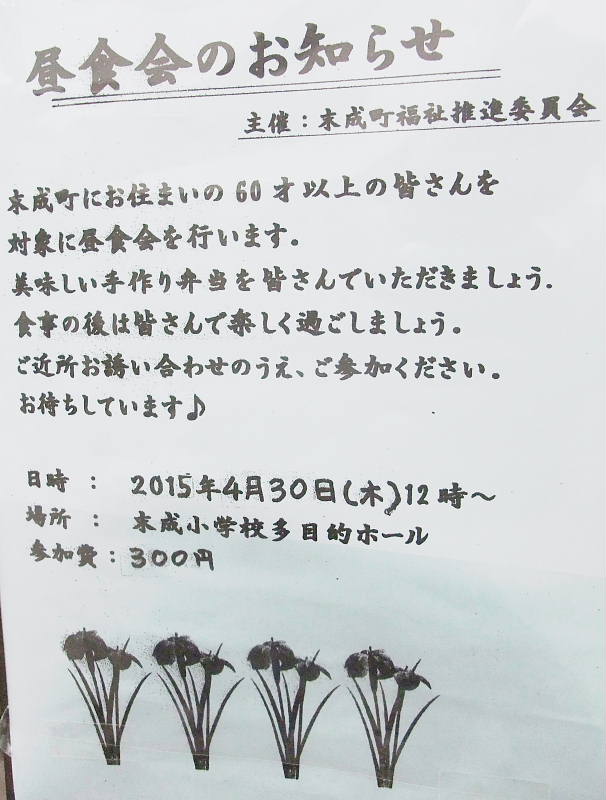 昼食会のお知らせ
主催：末成町福祉推進委員会
末成町にお住まいの60才以上の皆さんを
対象に昼食会を行います。
美味しい手作り弁当を皆さんでいただきましょう.
食事の後は皆さんで楽しく過ごしましょう。
ご近所お誘い合わせのうえ、ご参加ください。
お待ちしています♪
日時：2015年4月30日(木)12時～
場所：末成小学校多目的ホール
参加費：300円